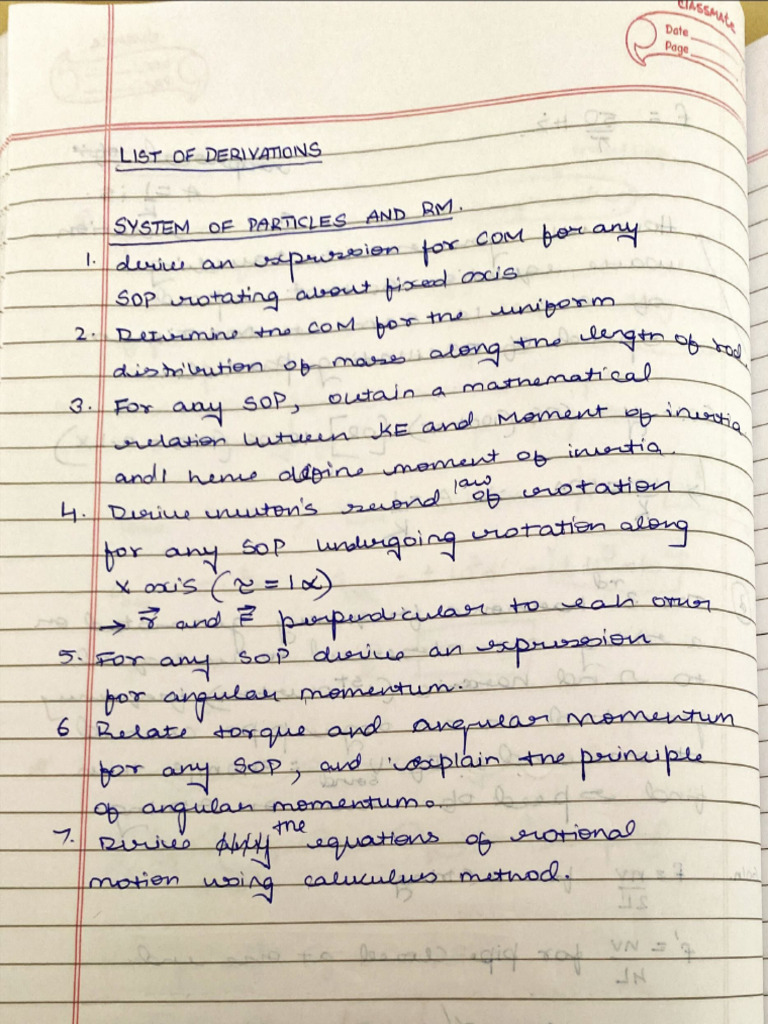 classmate
Date
Page
LIST OF DERIVATIONS
SYSTEM OF PARTICLES AND RM.
1. derive an expression for COM for any
SOP rotating about fixed axis
2. Determine the COM for the uniform
distribution of mass along the length of rod.
3. For any SOP, obtain a mathematical
relation between KE and Moment of inertia
and hence define moment of inertia.
4. Derive newton's second law of rotation
for any SOP undergoing rotation along
x axis (τ = Iα)
→ r⃗ and F⃗ perpendicular to each other
5. For any SOP derive an expression
for angular momentum.
6 Relate torque and angular momentum
for any SOP, and explain the principle
of angular momentum.
7. Derive the equations of rotional
motion using caluculus method.